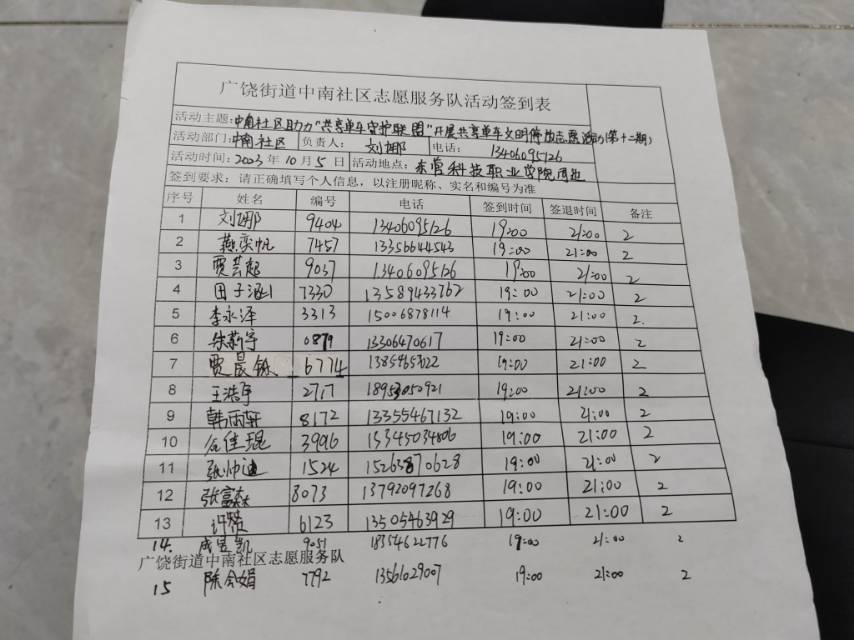 广饶街道中南社区志愿服务队活动签到表
活动主题：中南社区助力“共享单车守护联盟”开展共享单车文明停放志愿活动(第十二期)
活动部门：中南社区 负责人： 刘娜 电话： 13406095126
活动时间：2023年10月5日 活动地点：东营科技职业学院周边
签到要求：请正确填写个人信息，以注册昵称、实名和编号为准
序号 姓名 编号 电话 签到时间 签退时间 备注
1 刘娜 9404 13406095126 19:00 21:00 2
2 燕奕帆 7457 13356644543 19:00 21:00 2
3 贾芸超 9037 13406095126 19:00 21:00 2
4 田子涵 7330 13589433762 19:00 21:00 2
5 李永泽 3313 15006878114 19:00 21:00 2
6 朱新宇 0879 13306470617 19:00 21:00 2
7 贾晨 6774 19:00 21:00 2
8 王浩宇 2717 18953050921 19:00 21:00 2
9 韩丙轩 8172 13355467132 19:00 21:00 2
10 佳琨 3996 15345034806 19:00 21:00 2
11 张帅迪 1524 15263870628 19:00 21:00 2
12 张富森 8073 13792097268 19:00 21:00 2
13 许赞 6123 13505463929 19:00 21:00 2
14. 成昱凯 9051 18354622776 19:00 21:00 2
广饶街道中南社区志愿服务队
15 陈会娟 7792 13561029007 19:00 21:00 2